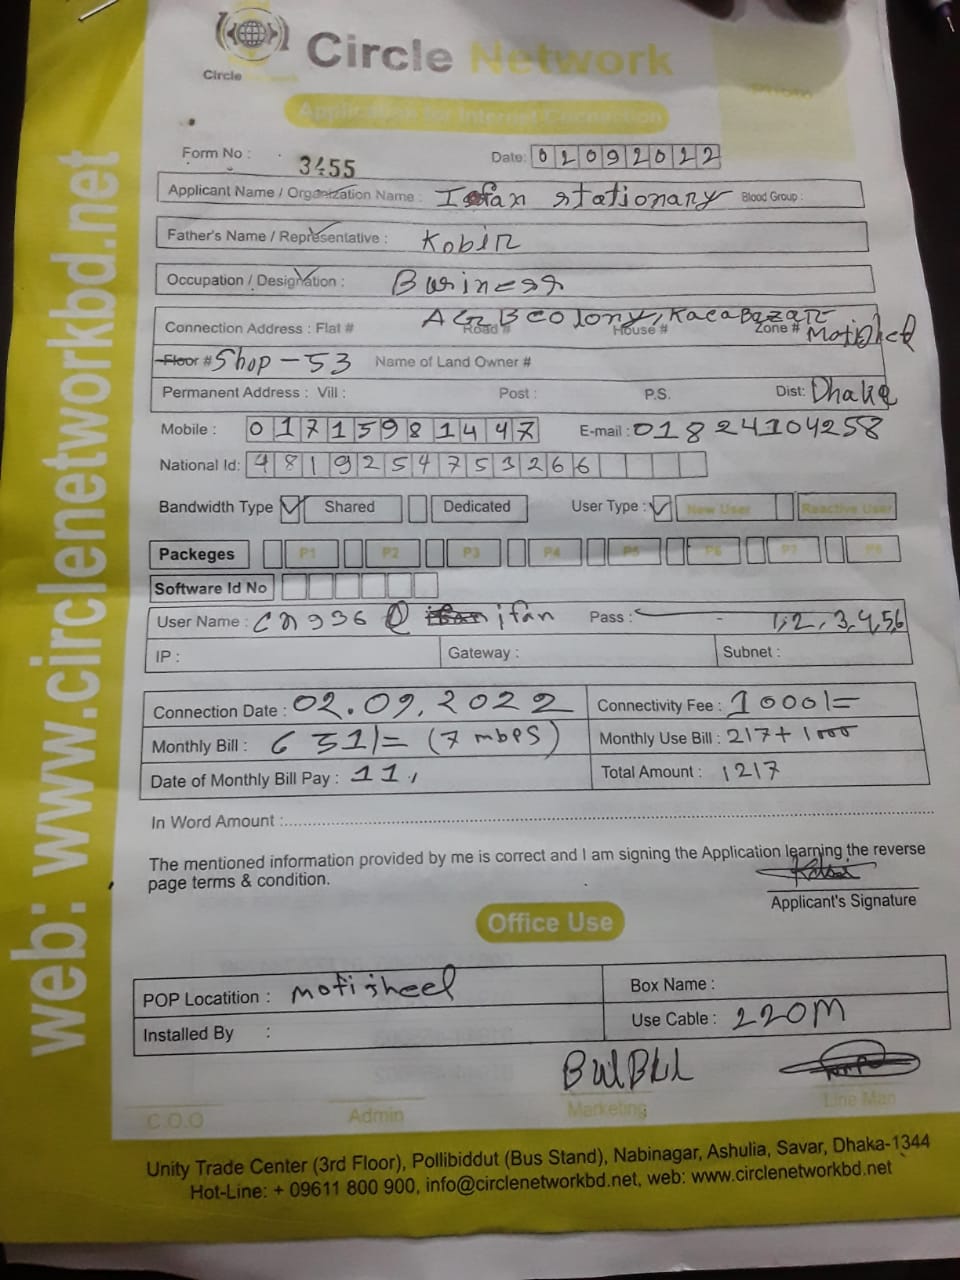 Circle Network
Circle
Application for Internet Connection
web: www.circlenetworkbd.net
Form No : 3455 Date: 02092022
Applicant Name / Organization Name : Iffan stationary Blood Group :
Father's Name / Representative : Kobir
Occupation / Designation : Business
AGB colony, KacaBazar
Connection Address : Flat # Road # House # Zone # Motijheel
Floor # Shop - 53 Name of Land Owner #
Permanent Address : Vill : Post : P.S. Dist: Dhaka
Mobile : 01715981447 E-mail : 01824104258
National Id: 4819254753266
Bandwidth Type Shared Dedicated User Type : New User Reactive User
Packeges P1 P2 P3 P4 P5 P6 P7 P8
Software Id No
User Name : cn936 @ ifan Pass : 1,2,3,4,5,6
IP : Gateway : Subnet :
Connection Date : 02.09.2022 Connectivity Fee : 1000/=
Monthly Bill : 631/= (7 mbps) Monthly Use Bill : 217+1000
Date of Monthly Bill Pay : 11, Total Amount : 1217
In Word Amount :
The mentioned information provided by me is correct and I am signing the Application learning the reverse
page terms & condition.
Applicant's Signature
Office Use
POP Locatition : motijheel Box Name :
Installed By : Use Cable : 220M
BulBul
C.O.O Admin Marketing Line Man
Unity Trade Center (3rd Floor), Pollibiddut (Bus Stand), Nabinagar, Ashulia, Savar, Dhaka-1344
Hot-Line: + 09611 800 900, info@circlenetworkbd.net, web: www.circlenetworkbd.net